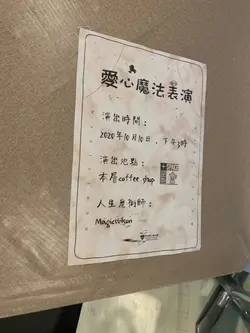 愛心魔法表演
演出時間：
2020年10月10日，下午3時
演出地點：
本層coffee shop
人生魔術師：
Magicvilson